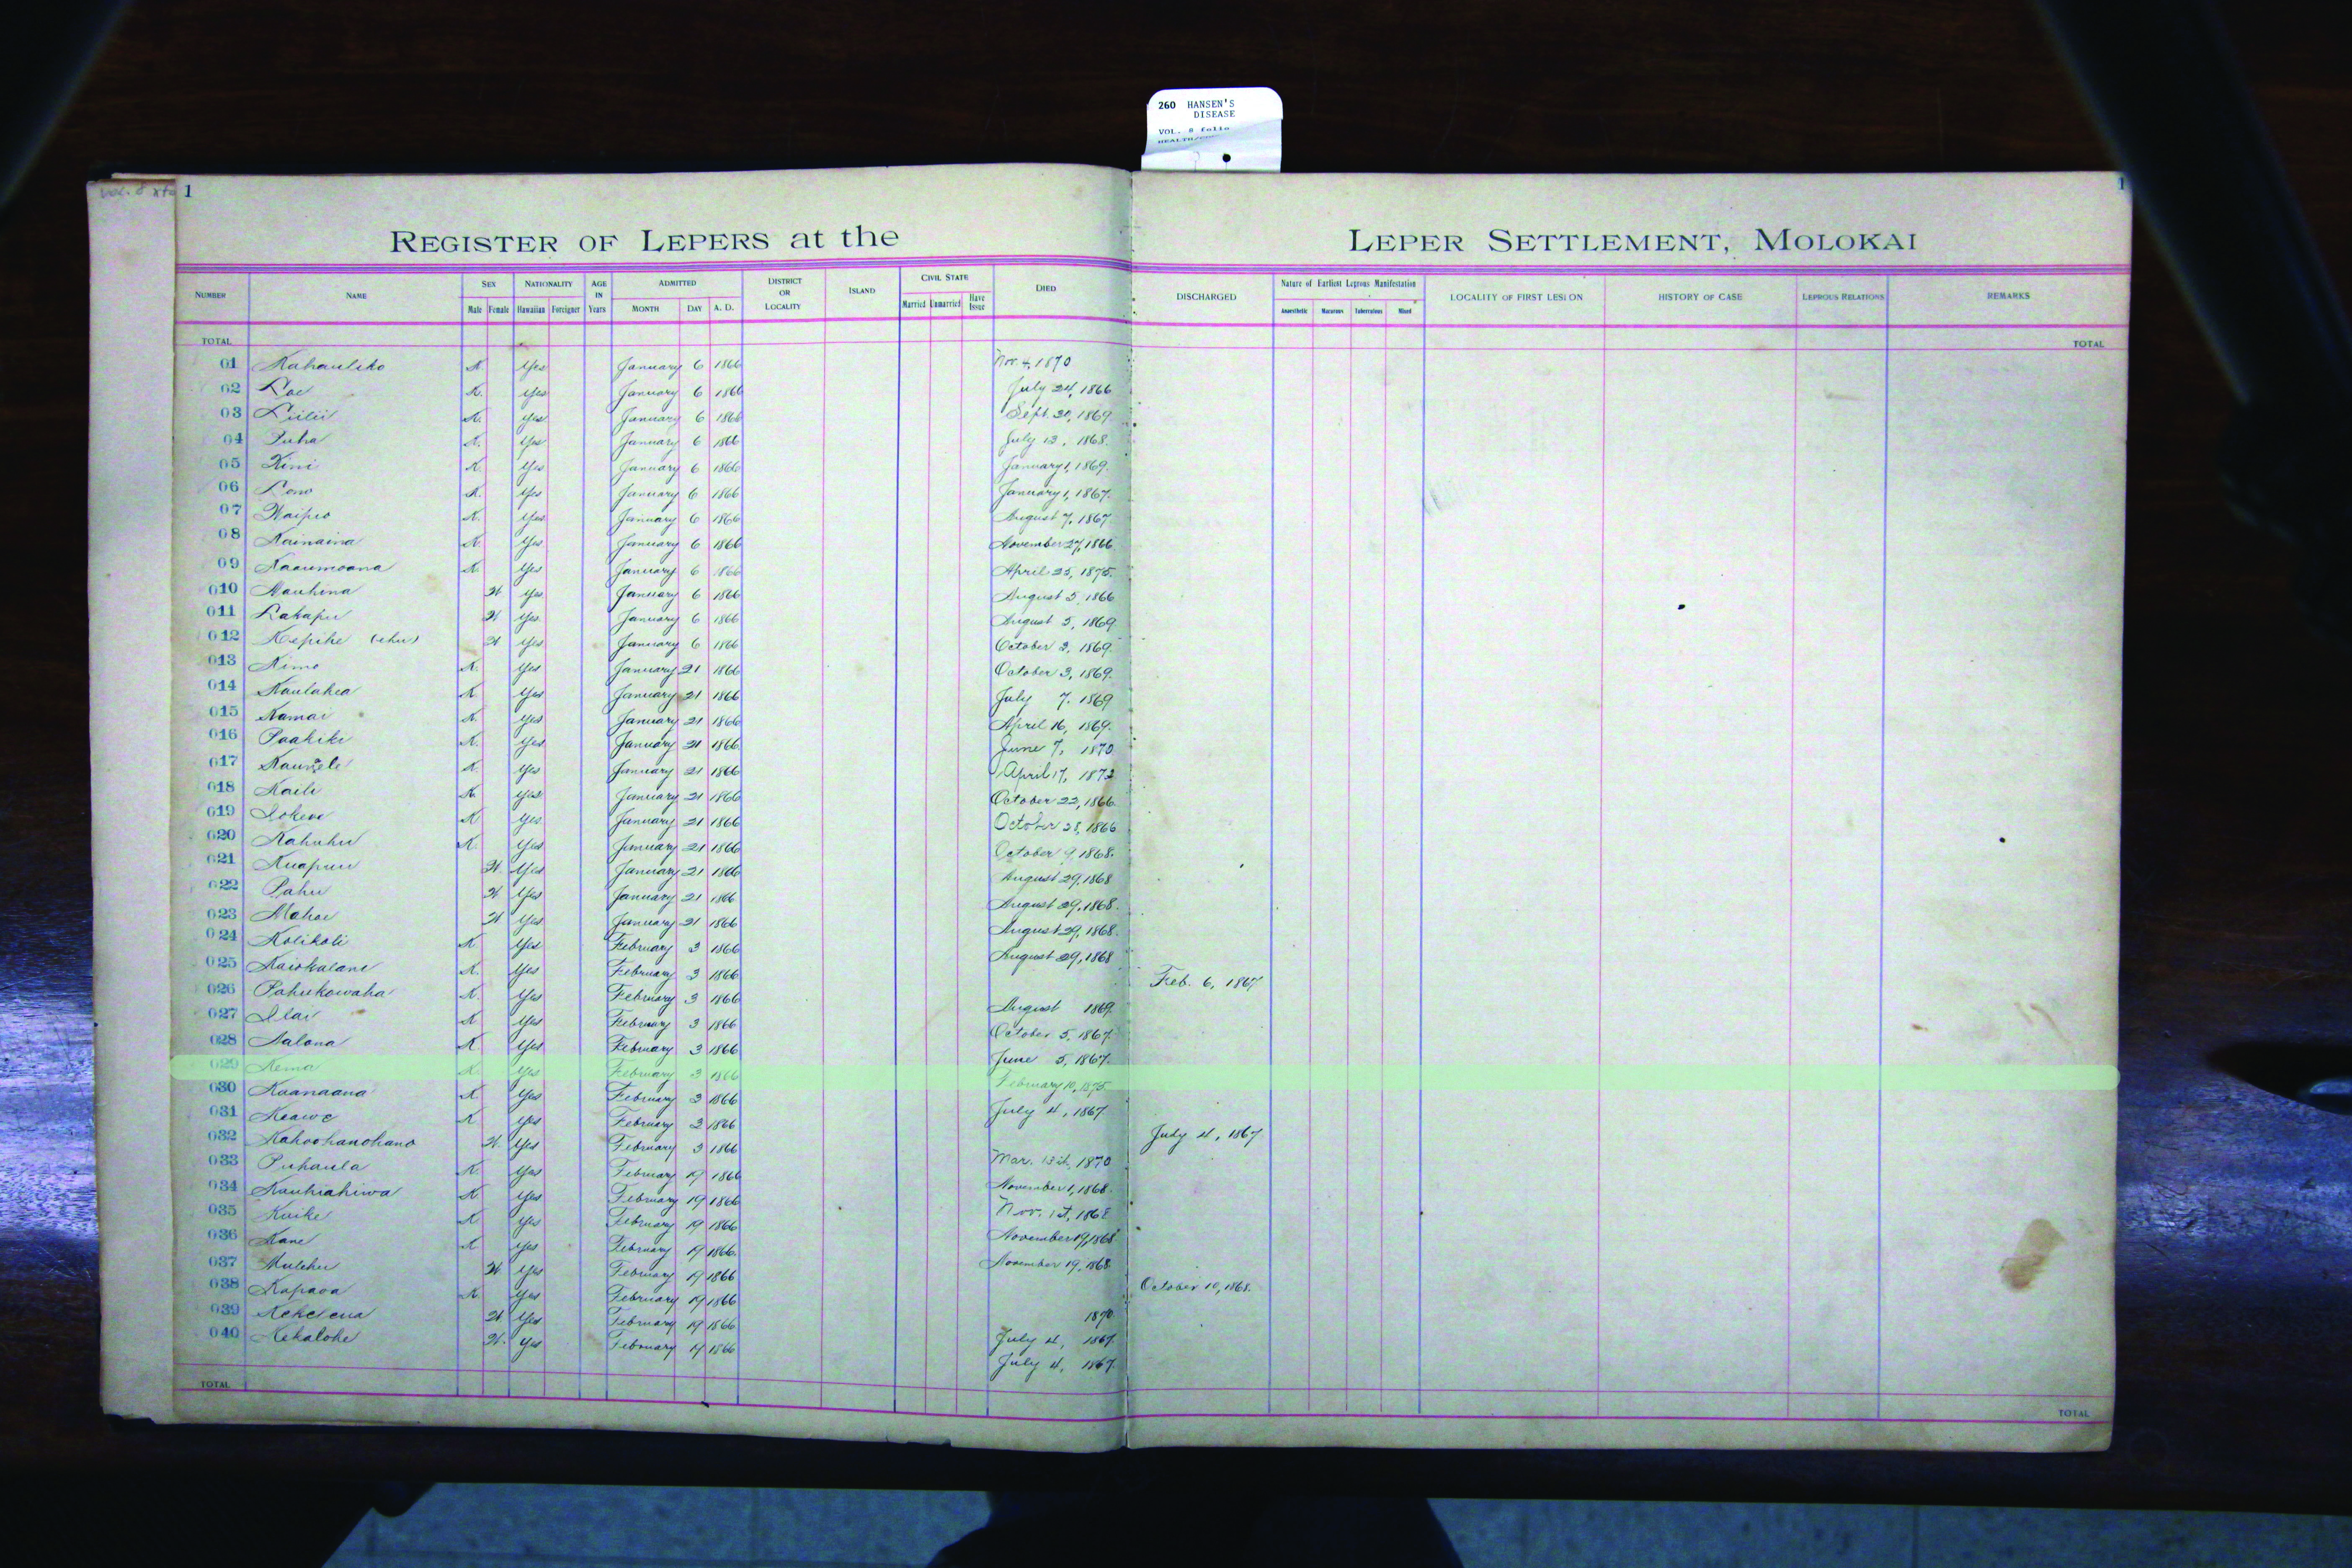 260 HANSEN'S
DISEASE
VOL. 8 folio
1
1
REGISTER OF LEPERS at the LEPER SETTLEMENT, MOLOKAI
NUMBER NAME SEX Male Female NATIONALITY Hawaiian Foreigner AGE IN Years ADMITTED MONTH DAY A. D. DISTRICT OR LOCALITY ISLAND CIVIL STATE Married Unmarried Have Issue DIED DISCHARGED Nature of Earliest Leprous Manifestation Anaesthetic Macurous Tuberculous Mixed LOCALITY OF FIRST LESION HISTORY OF CASE LEPROUS RELATIONS REMARKS
TOTAL TOTAL
01 Kahauliko K. Yes January 6 1866 Nov. 4, 1870
02 Loe K. Yes January 6 1866 July 24, 1866
03 Liilii K. Yes January 6 1866 Sept. 20, 1869
04 Puha K. Yes January 6 1866 July 13, 1868
05 Kini K. Yes January 6 1866 January 1, 1869.
06 Lono K. Yes January 6 1866 January 1, 1867.
07 Waipio K. Yes January 6 1866 August 7, 1867
08 Kainaina K. Yes January 6 1866 November 27, 1866
09 Kaaumoana K. Yes January 6 1866 April 25, 1875.
010 Mauhina W Yes January 6 1866 August 5, 1866
011 Lakapu W Yes January 6 1866 August 5, 1869
012 Kepihe (ehu) W Yes January 6 1866 October 3, 1869.
013 Kimo K. Yes January 21 1866 October 3, 1869.
014 Kaulahea K Yes January 21 1866 July 7, 1869
015 Kamai K. Yes January 21 1866 April 16, 1869.
016 Paakiki K. Yes January 21 1866 June 7, 1870
017 K. Yes January 21 1866 April 17, 1872
018 Kaili K. Yes January 21 1866 October 22, 1866.
019 Iokewe K Yes January 21 1866 October 28, 1866
020 Kahuhu K. Yes January 21 1866 October 9, 1868.
021 Kuapuu W. Yes January 21 1866 August 29, 1868
022 Pahu W Yes January 21 1866 August 29, 1868.
023 Mahoe W Yes January 21 1866 August 29, 1868.
024 Kolikoli K Yes February 3 1866 August 29, 1868
025 Kaiokalani K. Yes February 3 1866 Feb. 6, 1867
026 Pahukowaha K. Yes February 3 1866 August 1869.
027 Ilai K Yes February 3 1866 October 5, 1867.
028 Aalona K Yes February 3 1866 June 5, 1867.
029 Kema K. Yes February 3 1866 February 10, 1875.
030 Kaanaana K Yes February 3 1866 July 4, 1867
031 Keawe K. Yes February 3 1866 July 4, 1867
032 Kahoohanohano W. Yes February 3 1866 Mar. 13th, 1870
033 Puhaula K. Yes February 19 1866 November 1, 1868.
034 Kauhiahiwa K Yes February 19 1866 Nov. 1st, 1868
035 Kuike K Yes February 19 1866 November 19, 1868
036 Kane K Yes February 19 1866. November 19, 1868
037 W. Yes February 19 1866 October 10, 1868.
038 Kapaoa K. Yes February 19 1866 1870
039 Kekelena W Yes February 19 1866 July 4, 1867.
040 Kekalohe W. Yes February 19 1866 July 4, 1867.
TOTAL TOTAL